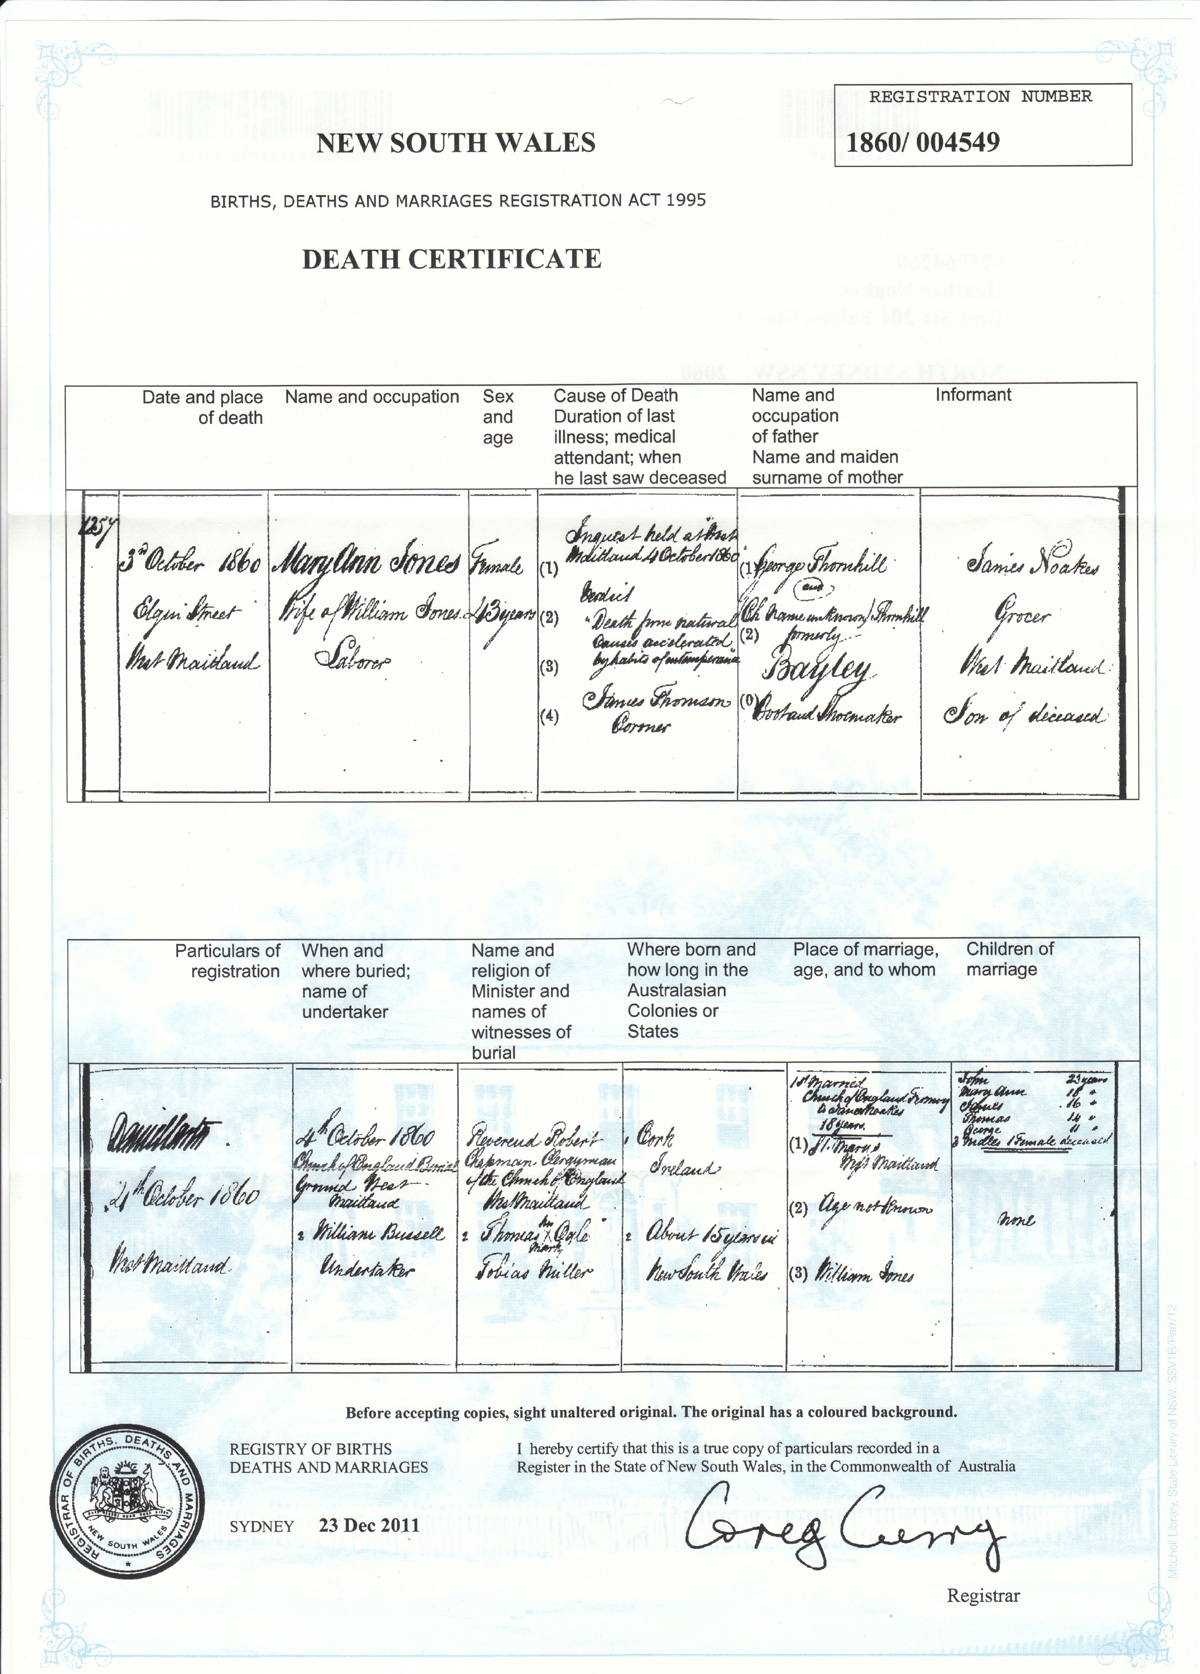 REGISTRATION NUMBER
1860/ 004549
NEW SOUTH WALES
BIRTHS, DEATHS AND MARRIAGES REGISTRATION ACT 1995
DEATH CERTIFICATE
Date and place
of death
Name and occupation
Sex
and
age
Cause of Death
Duration of last
illness; medical
attendant; when
he last saw deceased
Name and
occupation
of father
Name and maiden
surname of mother
Informant
1257
3rd October 1860
Elgin Street
West Maitland
Mary Ann Jones
Wife of William Jones
Laborer
Female
43 years
Inquest held at West
(1) Maitland 4 October 1860
Verdict
(2) "Death from natural
causes accelerated
(3) by habits of intemperance"
James Thomson
(4) Coroner
(1) George Thornhill
and
(Ch Name unknown) Thornhill
(2) formerly
Bayley
(0) Boot and Shoemaker
James Noakes
Grocer
West Maitland
Son of deceased
Particulars of
registration
When and
where buried;
name of
undertaker
Name and
religion of
Minister and
names of
witnesses of
burial
Where born and
how long in the
Australasian
Colonies or
States
Place of marriage,
age, and to whom
Children of
marriage
4th October 1860
West Maitland
4th October 1860
Church of England Burial
Ground West
Maitland
2 William Bussell
Undertaker
Reverend Robert
Chapman Clergyman
of the Church of England
West Maitland
2 Thomas X Ogle
mark
Tobias Miller
1 Cork
Ireland
2 About 15 years in
New South Wales
1st Married
Church of England
to James Noakes
18 years
(1) St. Mary's
West Maitland
(2) Age not known
(3) William Jones
John 23 years
Mary Ann 18 "
James 16 "
Thomas 14 "
George 11 "
3 Males 1 Female deceased
none
Before accepting copies, sight unaltered original. The original has a coloured background.
REGISTRY OF BIRTHS
DEATHS AND MARRIAGES
I hereby certify that this is a true copy of particulars recorded in a
Register in the State of New South Wales, in the Commonwealth of Australia
SYDNEY 23 Dec 2011
Greg Curry
Registrar
REGISTRAR OF BIRTHS, DEATHS AND MARRIAGES
NEW SOUTH WALES
Mitchell Library, State Library of NSW. SSV1B/Parr/12